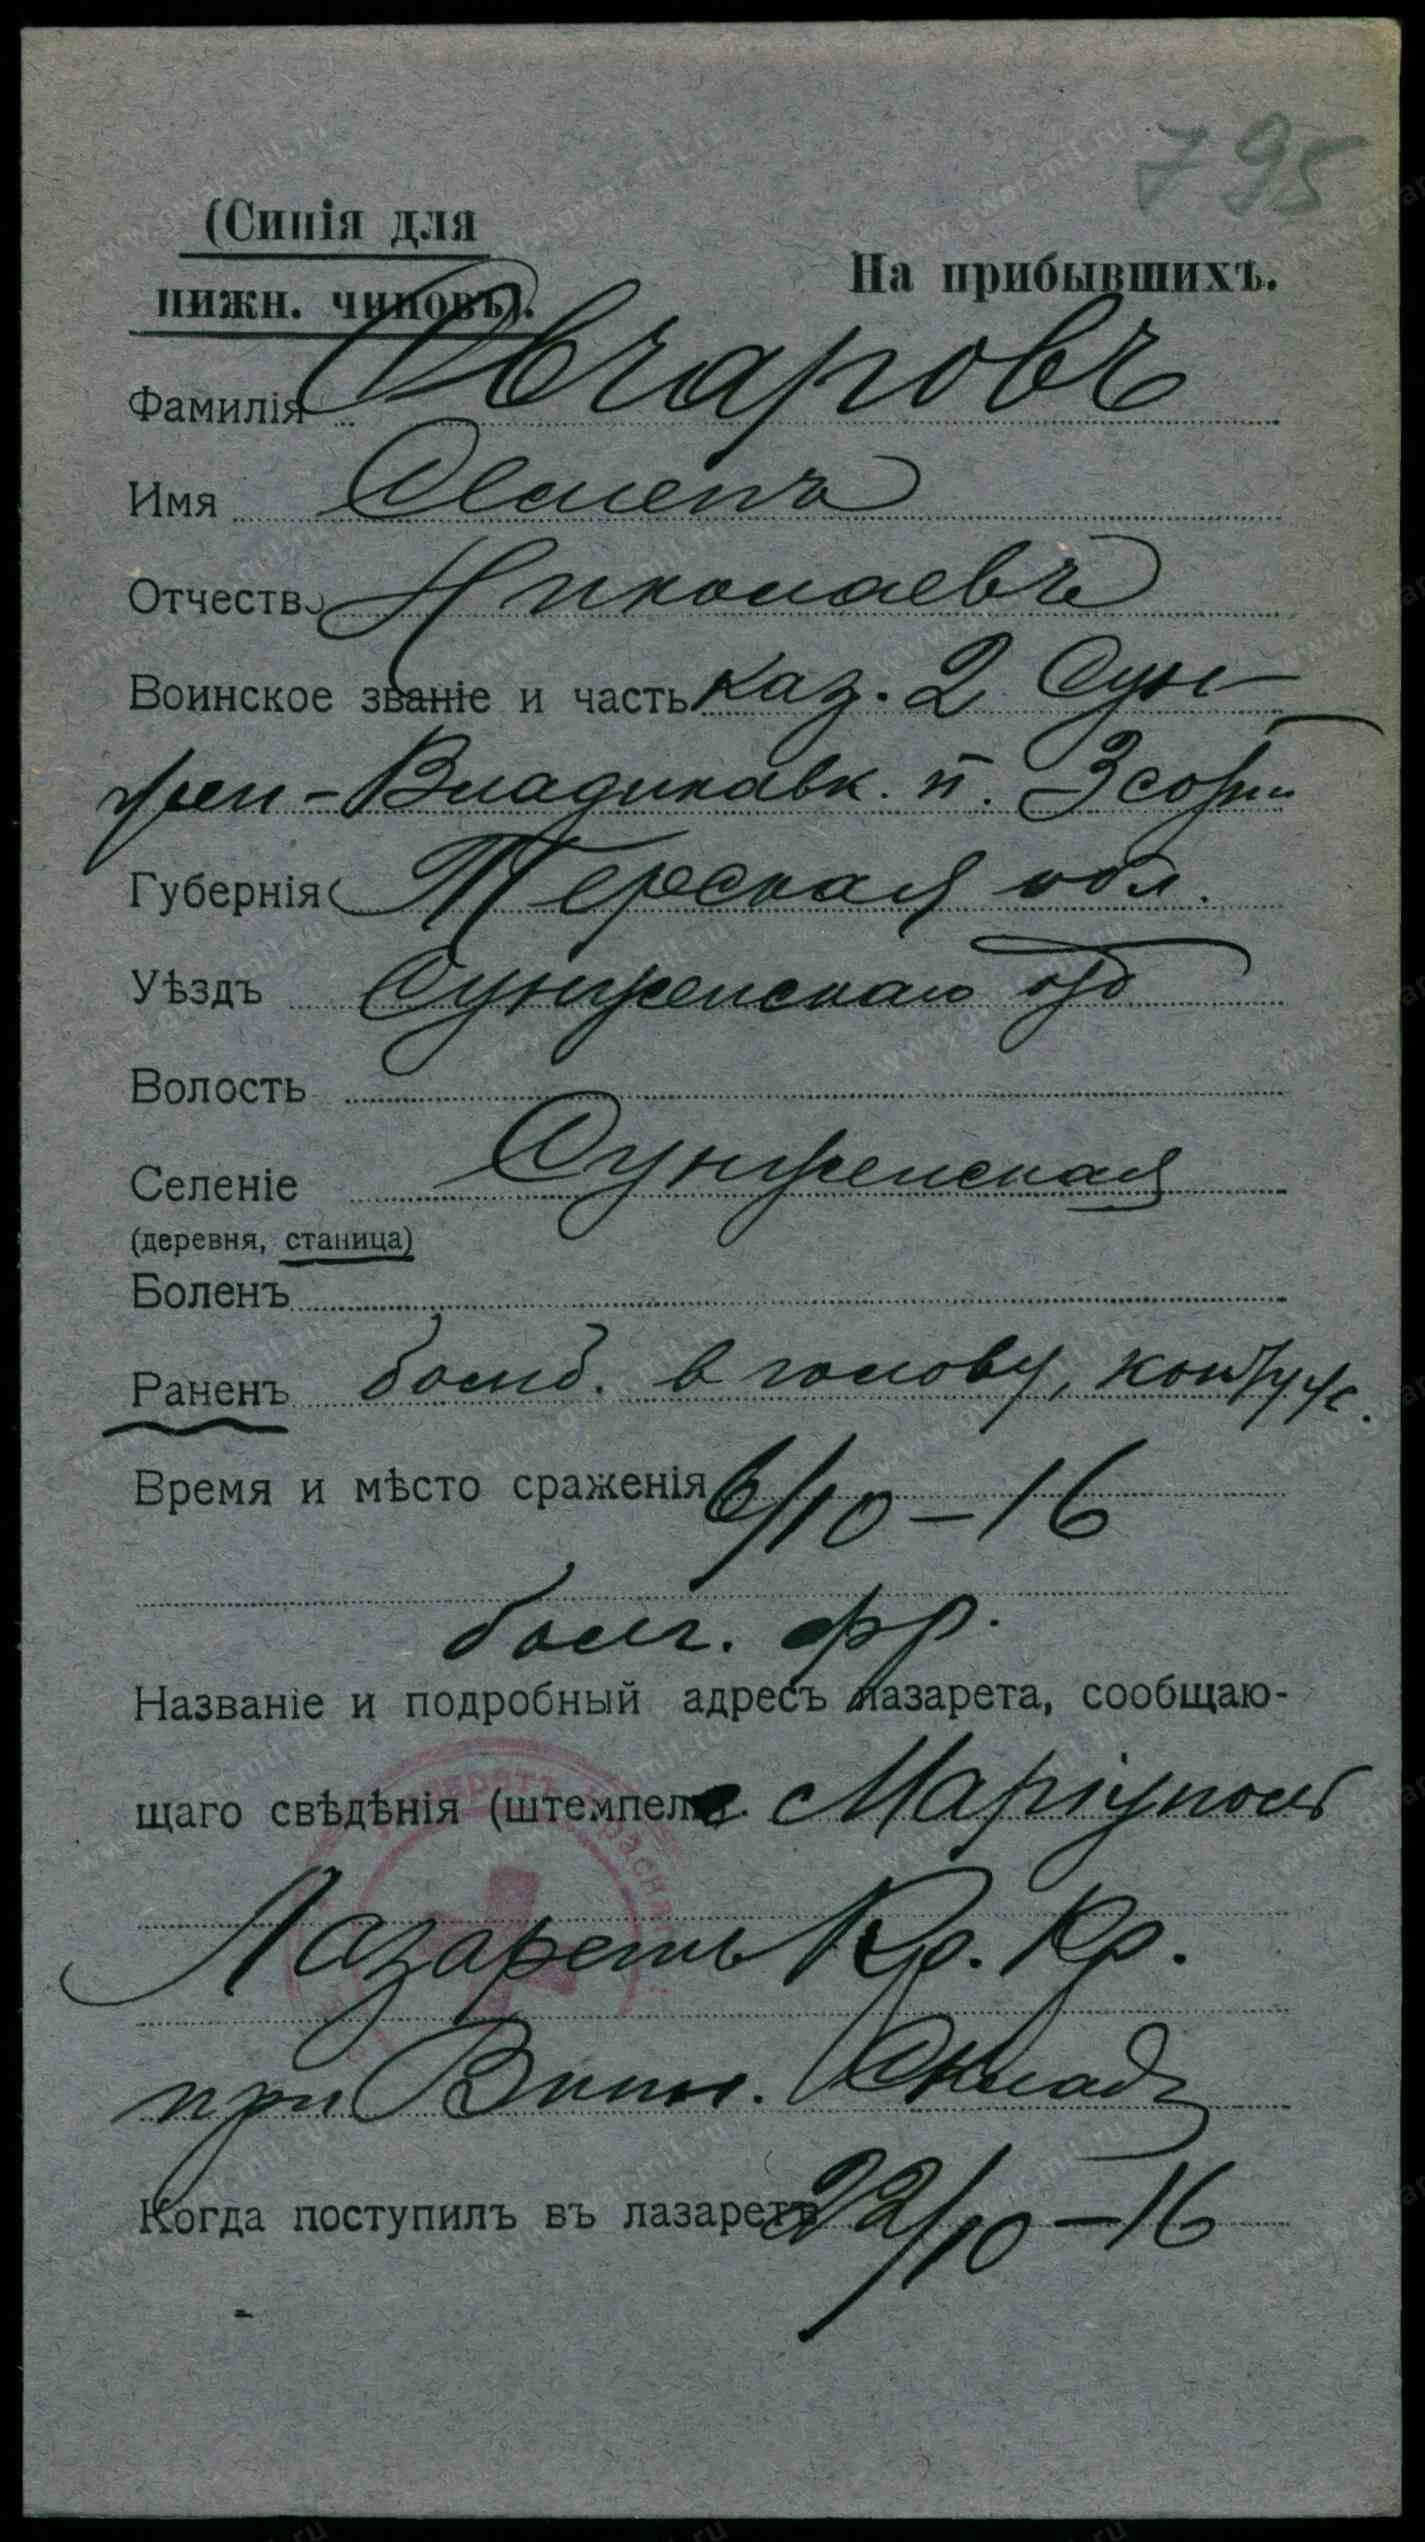 795
(Синія для
нижн. чиновъ).
На прибывшихъ.
Фамилія Овчаровъ
Имя
Отчество Николаевъ
Воинское званіе и часть каз. 2 Сун-
жен-Владикавк. п. 3 сотн
Губернія Терская обл.
Уѣздъ Сунженскаго отд
Волость
Селеніе Сунженская
(деревня, станица)
Боленъ
Раненъ бомб. в голову, контуж.
Время и мѣсто сраженія 6/10-16
фр.
Названіе и подробный адресъ лазарета, сообщаю-
щаго свѣдѣнія (штемпель). Маріуполь
Лазаретъ Кр. Кр.
при Винн. Складѣ
Когда поступилъ въ лазаретъ 22/10-16
www.gwar.mil.ru